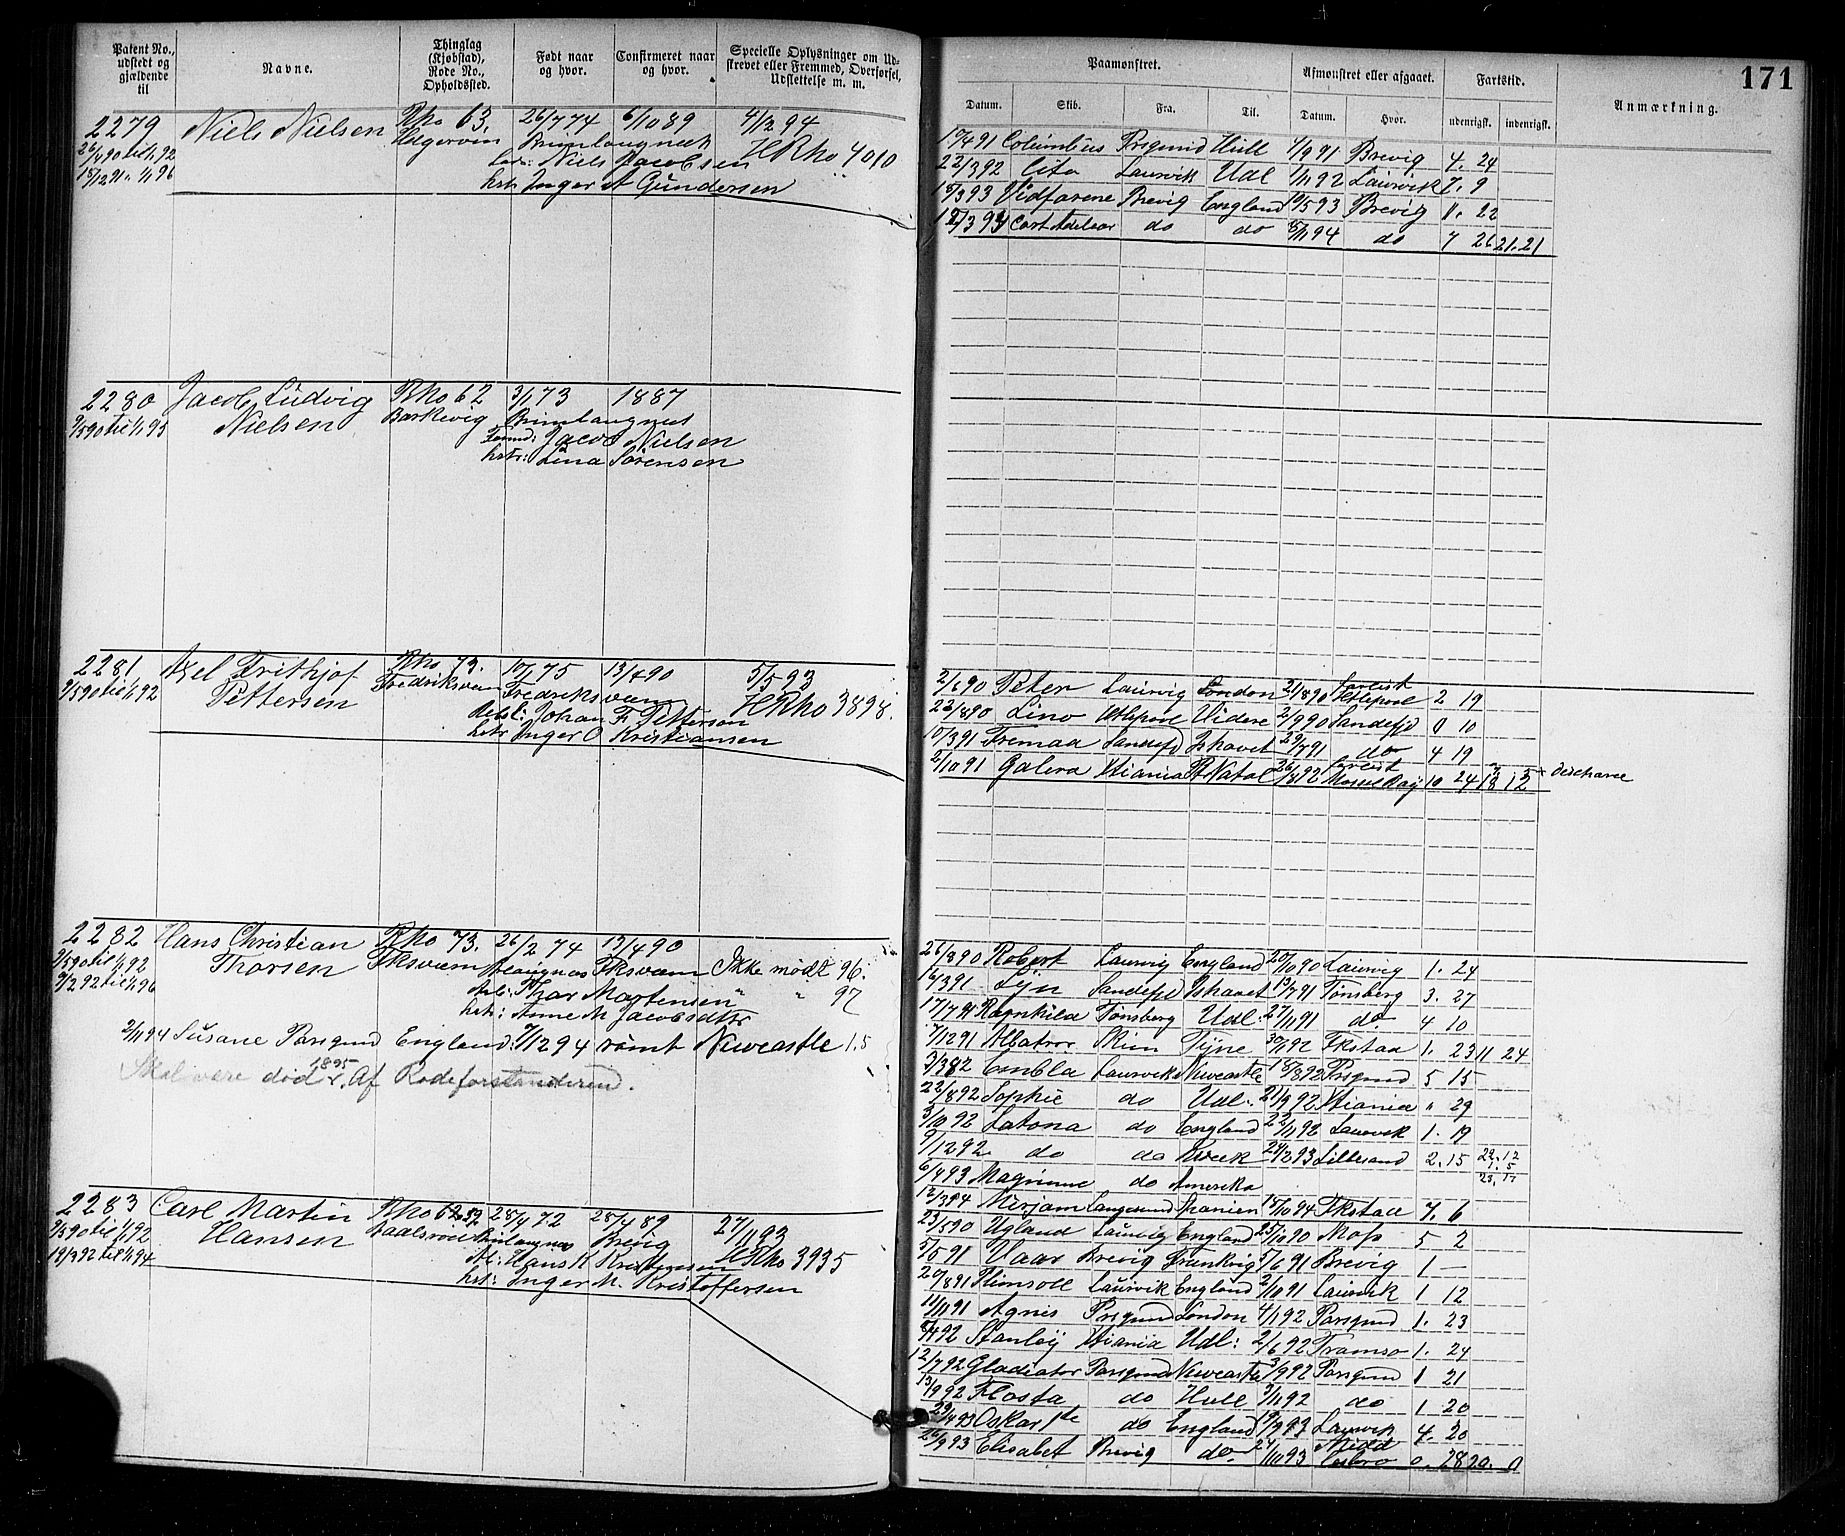 Patent No., udstedt og gjældende til
Navne.
Thinglag (Kjøbstad), Rode No., Opholdssted.
Født naar og hvor.
Confirmeret naar og hvor.
Specielle Oplysninger om Udskrevet eller Fremmed, Overførsel, Udslettelse m. m.
Paamønstret.
Afmønstret eller afgaaet.
Fartstid.
171
Datum.
Skib.
Fra.
Til.
Datum.
Hvor.
udenrigsk.
indenrigsk.
Anmærkning.
2279 Niels Nielsen Rho 63. 26/7 74 6/10 89 4/12 94
26/4 90 til 1/1 92 Helgeroen Brunlangnæs HRho 4010
15/12 91 " 1/1 96 Niels Jacobsen
hstr: Inger A Gundersen
17/4 91 Columbus Prsgrund Hull 4/9 91 Brevig 4. 24
22/3 92 Cito Laurvik Udl 1/11 92 Laurvik 7. 9
15/3 93 Vidfarene Brevig England Brevig 22
Cort Adelaar do do 5/11 94 do 7 26 21. 21
2280 Jacob Ludvig Rho 62 3/1 73 1887
9/5 90 til 1/1 95 Nielsen Barkevig Brunlangnæs
Jacob Nielsen
hstr: Lina Sørensen
2281 Axel Frithjof Rho 73. 10/1 75 13/4 90 5/5 93
9/5 90 til 1/1 92 Pettersen Fredriksværn Fredriksværn HRho 3898.
Johan F. Pettersen
hstr Inger O Kristiansen
2/6 90 Peter Laurvig London 21/8 90 Htlepool 2 19
23/8 90 Lino Htlepool Videre 2/9 90 Sandefjd 0 10
10/3 91 Fremad Sandefjd Ishavet 29/7 91 do 4 19
2/10 91 Galera Xtiania Pt Natal 26/8 92 Mossel Bay 10 24
2282 Hans Christian Rho 73. 26/2 74 13/4 90
9/5 90 til 1/1 92 Thorsen Fksværn Fksværn Ikke mødt 96.
9/2 92 til 1/1 96 Thor Martensen " " 97
hstr: Anne M. Jacobsdtr
2/11 94 Susane Porsgrund England. 7/12 94 rømt Newcastle 1.5
Skal være død 1895. Af Rodeforstanderen.
26/8 90 Robert Laurvig England 20/10 90 Laurvig 1. 24
14/3 91 Lyn Sandefjd Ishavet 10/7 91 Tønsberg 3. 27
17/7 91 Ragnhild Tønsberg Udl: 27/11 91 do. 4 10
7/12 91 Albatros Skien Tyne 30/1 92 Fkstad 1. 23 11 24
3/3 82 Embla Laurvik Newcastle 18/8 92 Prsgrund 5 15
22/8 92 Sophie do Udl: 21/9 92 Xtiania " 29
3/10 92 Latona do England 22/11 92 Laurvik 1. 19
9/12 92 do do 24/2 93 Lillesand 2. 15 22. 12
6/4 93 Magnune do Amerika 23. 17
12/3 94 Mirjam Langesund Spanien 18/10 94 Fkstad 7. 6
2283 Carl Martin Rho 28/4 72 28/4 89 27/11 93
9/5 90 til 1/1 92 Hansen Brunlangnæs Brevig HRho 3935
19/3 92 til 1/1 94 Hans K Kristensen
hstr: Inger M. Kristoffersen
23/5 90 Ugland Laurvig England 25/10 90 Moss 5 2
5/5 91 Haar Brevig Frankrig 5/6 91 Brevig 1 —
20/8 91 Plimsoll Laurvik England 2/10 91 Laurvik 1 12
11/11 91 Agnes Prsgrund London 4/1 92 Porsgrund 1. 23
8/4 92 Stanley Xtiania Udl: 2/6 92 Tromsø 1. 24
12/7 92 Gladiator Porsgrund Newcastle 3/9 92 Porsgrund 1 21
13/9 92 Flosta do Hull 3/11 92 do 1 20
29/4 93 Oskar 1ste do England 19/9 93 Laurvik 4. 20
26/9 93 Elisabet Brevig do. 24/10 93 Middlesbro 0. 28 20. 0